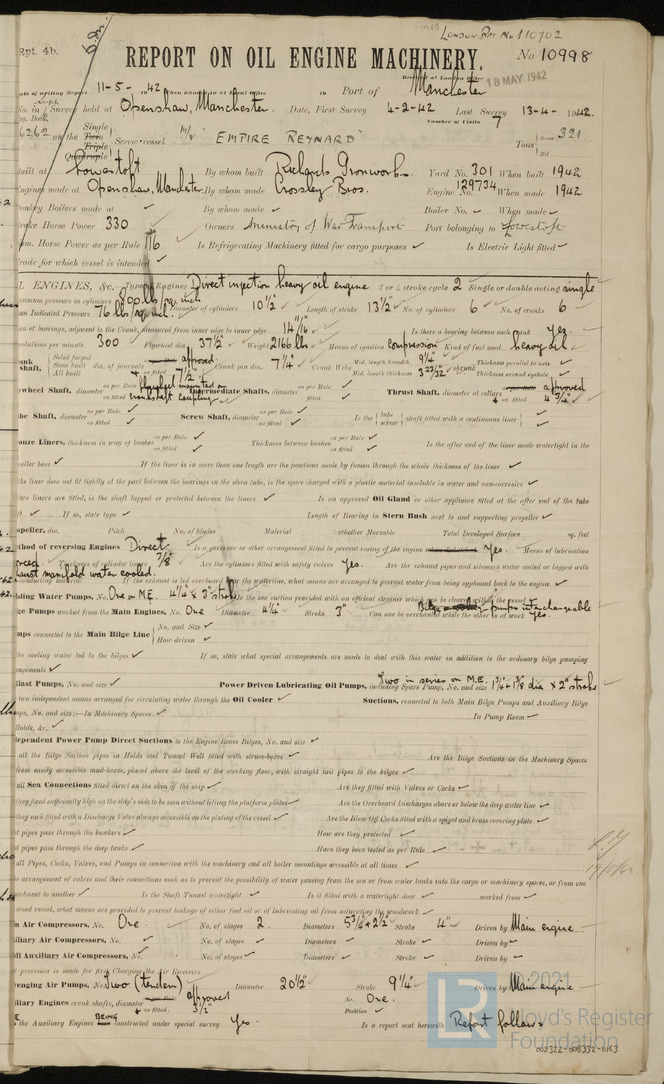 London Rpt No 110702
Rpt. 4b.
REPORT ON OIL ENGINE MACHINERY.
No 10998
18 MAY 1942
11-5-42 Port of Manchester
Survey held at Openshaw, Manchester. Date, First Survey 4-2-42 Last Survey 13-4-1942.
Number of Visits 7
on the Single Twin Triple Quadruple Screw vessel M/V "EMPIRE REYNARD" Tons Gross 321
Net
built at Lowestoft By whom built Richards Ironworks Yard No. 301 When built 1942
Engines made at Openshaw, Manchester By whom made Crossley Bros. Engine No. 129734 When made 1942
Donkey Boilers made at By whom made Boiler No. When made
Brake Horse Power 330 Owners Ministry of War Transport Port belonging to Lowestoft
Nom. Horse Power as per Rule 116 Is Refrigerating Machinery fitted for cargo purposes Is Electric Light fitted
Trade for which vessel is intended
OIL ENGINES, &c. Type of Engines Direct injection heavy oil engine 2 or 4 stroke cycle 2 Single or double acting single
Maximum pressure in cylinders 800 lbs/sq. inch Diameter of cylinders 10½" Length of stroke 13½" No. of cylinders 6 No. of cranks 6
Mean Indicated Pressure 76 lbs/sq. in.
Span of bearings, adjacent to the Crank, measured from inner edge to inner edge 14 11/16" Is there a bearing between each crank Yes
Revolutions per minute 300 Flywheel dia. 37½" Weight 2166 lbs Means of ignition compression Kind of fuel used heavy oil
Crank Shaft, Solid forged Semi built All built dia. of journals approved 7½" Crank pin dia. 7¼" Crank Webs Mid. length breadth 9¼" Thickness parallel to axis
Mid. length thickness 3 23/32" shrunk Thickness around eyehole
Flywheel Shaft, diameter as per Rule as fitted flywheel mounted on crankshaft coupling Intermediate Shafts, diameter as per Rule as fitted Thrust Shaft, diameter at collars approved as fitted 4¾"
Tube Shaft, diameter as per Rule as fitted Screw Shaft, diameter as per Rule as fitted Is the tube screw shaft fitted with a continuous liner
Bronze Liners, thickness in way of bushes as per Rule as fitted Thickness between bushes as per Rule as fitted Is the after end of the liner made watertight in the
propeller boss If the liner is in more than one length are the junctions made by fusion through the whole thickness of the liner
the liner does not fit tightly at the part between the bearings in the stern tube, is the space charged with a plastic material insoluble in water and non-corrosive
two liners are fitted, is the shaft lapped or protected between the liners Is an approved Oil Gland or other appliance fitted at the after end of the tube
If so, state type Length of Bearing in Stern Bush next to and supporting propeller
Propeller, dia. Pitch No. of blades Material whether Moveable Total Developed Surface sq. feet
Method of reversing Engines Direct Is a governor or other arrangement fitted to prevent racing of the engine Yes. Means of lubrication
forced Thickness of cylinder liners 7/8" Are the cylinders fitted with safety valves Yes. Are the exhaust pipes and silencers water cooled or lagged with
exhaust manifold water cooled. If the exhaust is led overboard near the waterline, what means are arranged to prevent water being syphoned back to the engine
Cooling Water Pumps, No. One on M.E. 4¼" x 3" stroke Is the sea suction provided with an efficient strainer which can be cleared within the vessel
Bilge Pumps worked from the Main Engines, No. One Diameter 4¼" Stroke 3" Can one be overhauled while the other is at work pumps interchangeable Yes.
Pumps connected to the Main Bilge Line No. and Size How driven
the cooling water led to the bilges If so, state what special arrangements are made to deal with this water in addition to the ordinary bilge pumping
arrangements
Ballast Pumps, No. and size Power Driven Lubricating Oil Pumps, including Spare Pump, No. and size Two in series on M.E. 1¾" - 1⅜" dia x 2" stroke
two independent means arranged for circulating water through the Oil Cooler Suctions, connected to both Main Bilge Pumps and Auxiliary Bilge
Pumps, No. and size:—In Machinery Spaces In Pump Room
Holds, &c.
Independent Power Pump Direct Suctions to the Engine Room Bilges, No. and size
all the Bilge Suction pipes in Holds and Tunnel Well fitted with strum-boxes Are the Bilge Suctions in the Machinery Spaces
from easily accessible mud-boxes, placed above the level of the working floor, with straight tail pipes to the bilges
all Sea Connections fitted direct on the skin of the ship Are they fitted with Valves or Cocks
they fixed sufficiently high on the ship's side to be seen without lifting the platform plates Are the Overboard Discharges above or below the deep water line
they each fitted with a Discharge Valve always accessible on the plating of the vessel Are the Blow Off Cocks fitted with a spigot and brass covering plate
pipes pass through the bunkers How are they protected
pipes pass through the deep tanks Have they been tested as per Rule
all Pipes, Cocks, Valves, and Pumps in connection with the machinery and all boiler mountings accessible at all times
arrangement of valves and their connections such as to prevent the possibility of water passing from the sea or from water tanks into the cargo or machinery spaces, or from one
compartment to another Is the Shaft Tunnel watertight Is it fitted with a watertight door worked from
wood vessel, what means are provided to prevent leakage of either fuel oil or of lubricating oil from saturating the woodwork
Main Air Compressors, No. One No. of stages 2. Diameters 5¾" & 2½" Stroke 4" Driven by Main engine
Auxiliary Air Compressors, No. No. of stages Diameters Stroke Driven by
Small Auxiliary Air Compressors, No. No. of stages Diameters Stroke Driven by
provision is made for first Charging the Air Receivers
Scavenging Air Pumps, No. Two (tandem) Diameter 20½" Stroke 9¼" Driven by Main engine
Auxiliary Engines crank shafts, diameter approved as fitted. 3½" No. One. Position
the Auxiliary Engines BEING constructed under special survey Yes. Is a report sent herewith Report follows
© 2021
Lloyd's Register
Foundation
002322-008332-0163